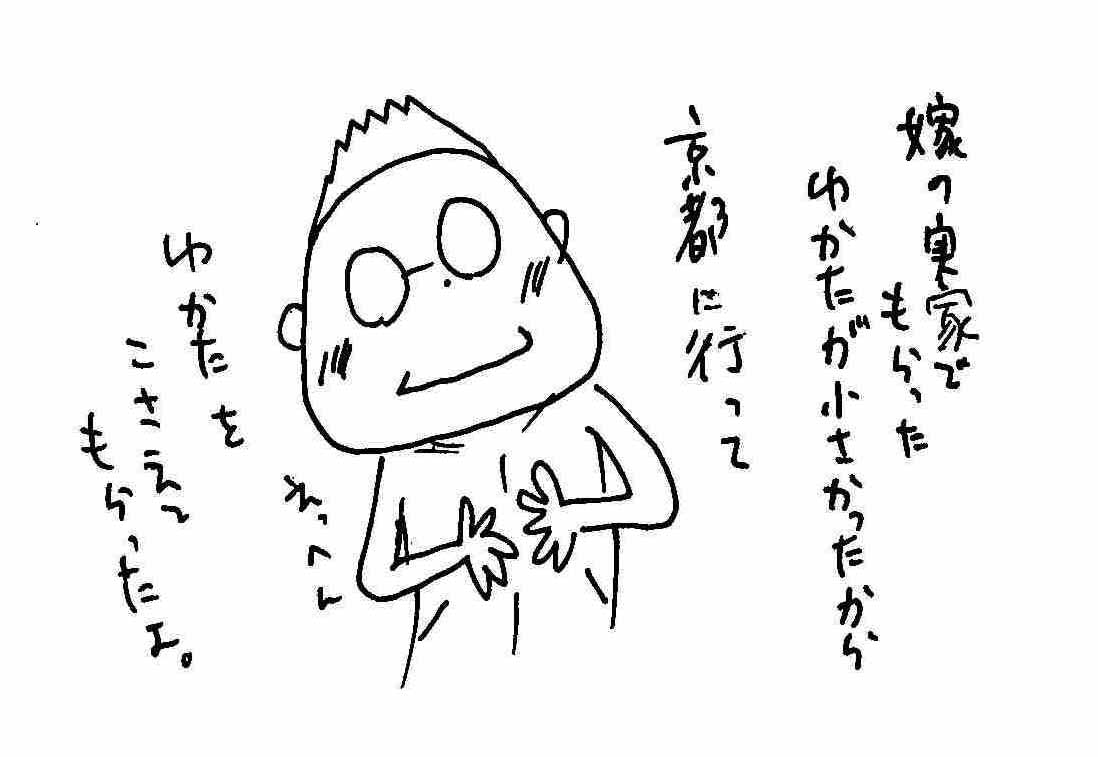 嫁の実家で
もらった
ゆかたが小さかったから
京都に行って
ゆかたを
こさえて
もらったよ。